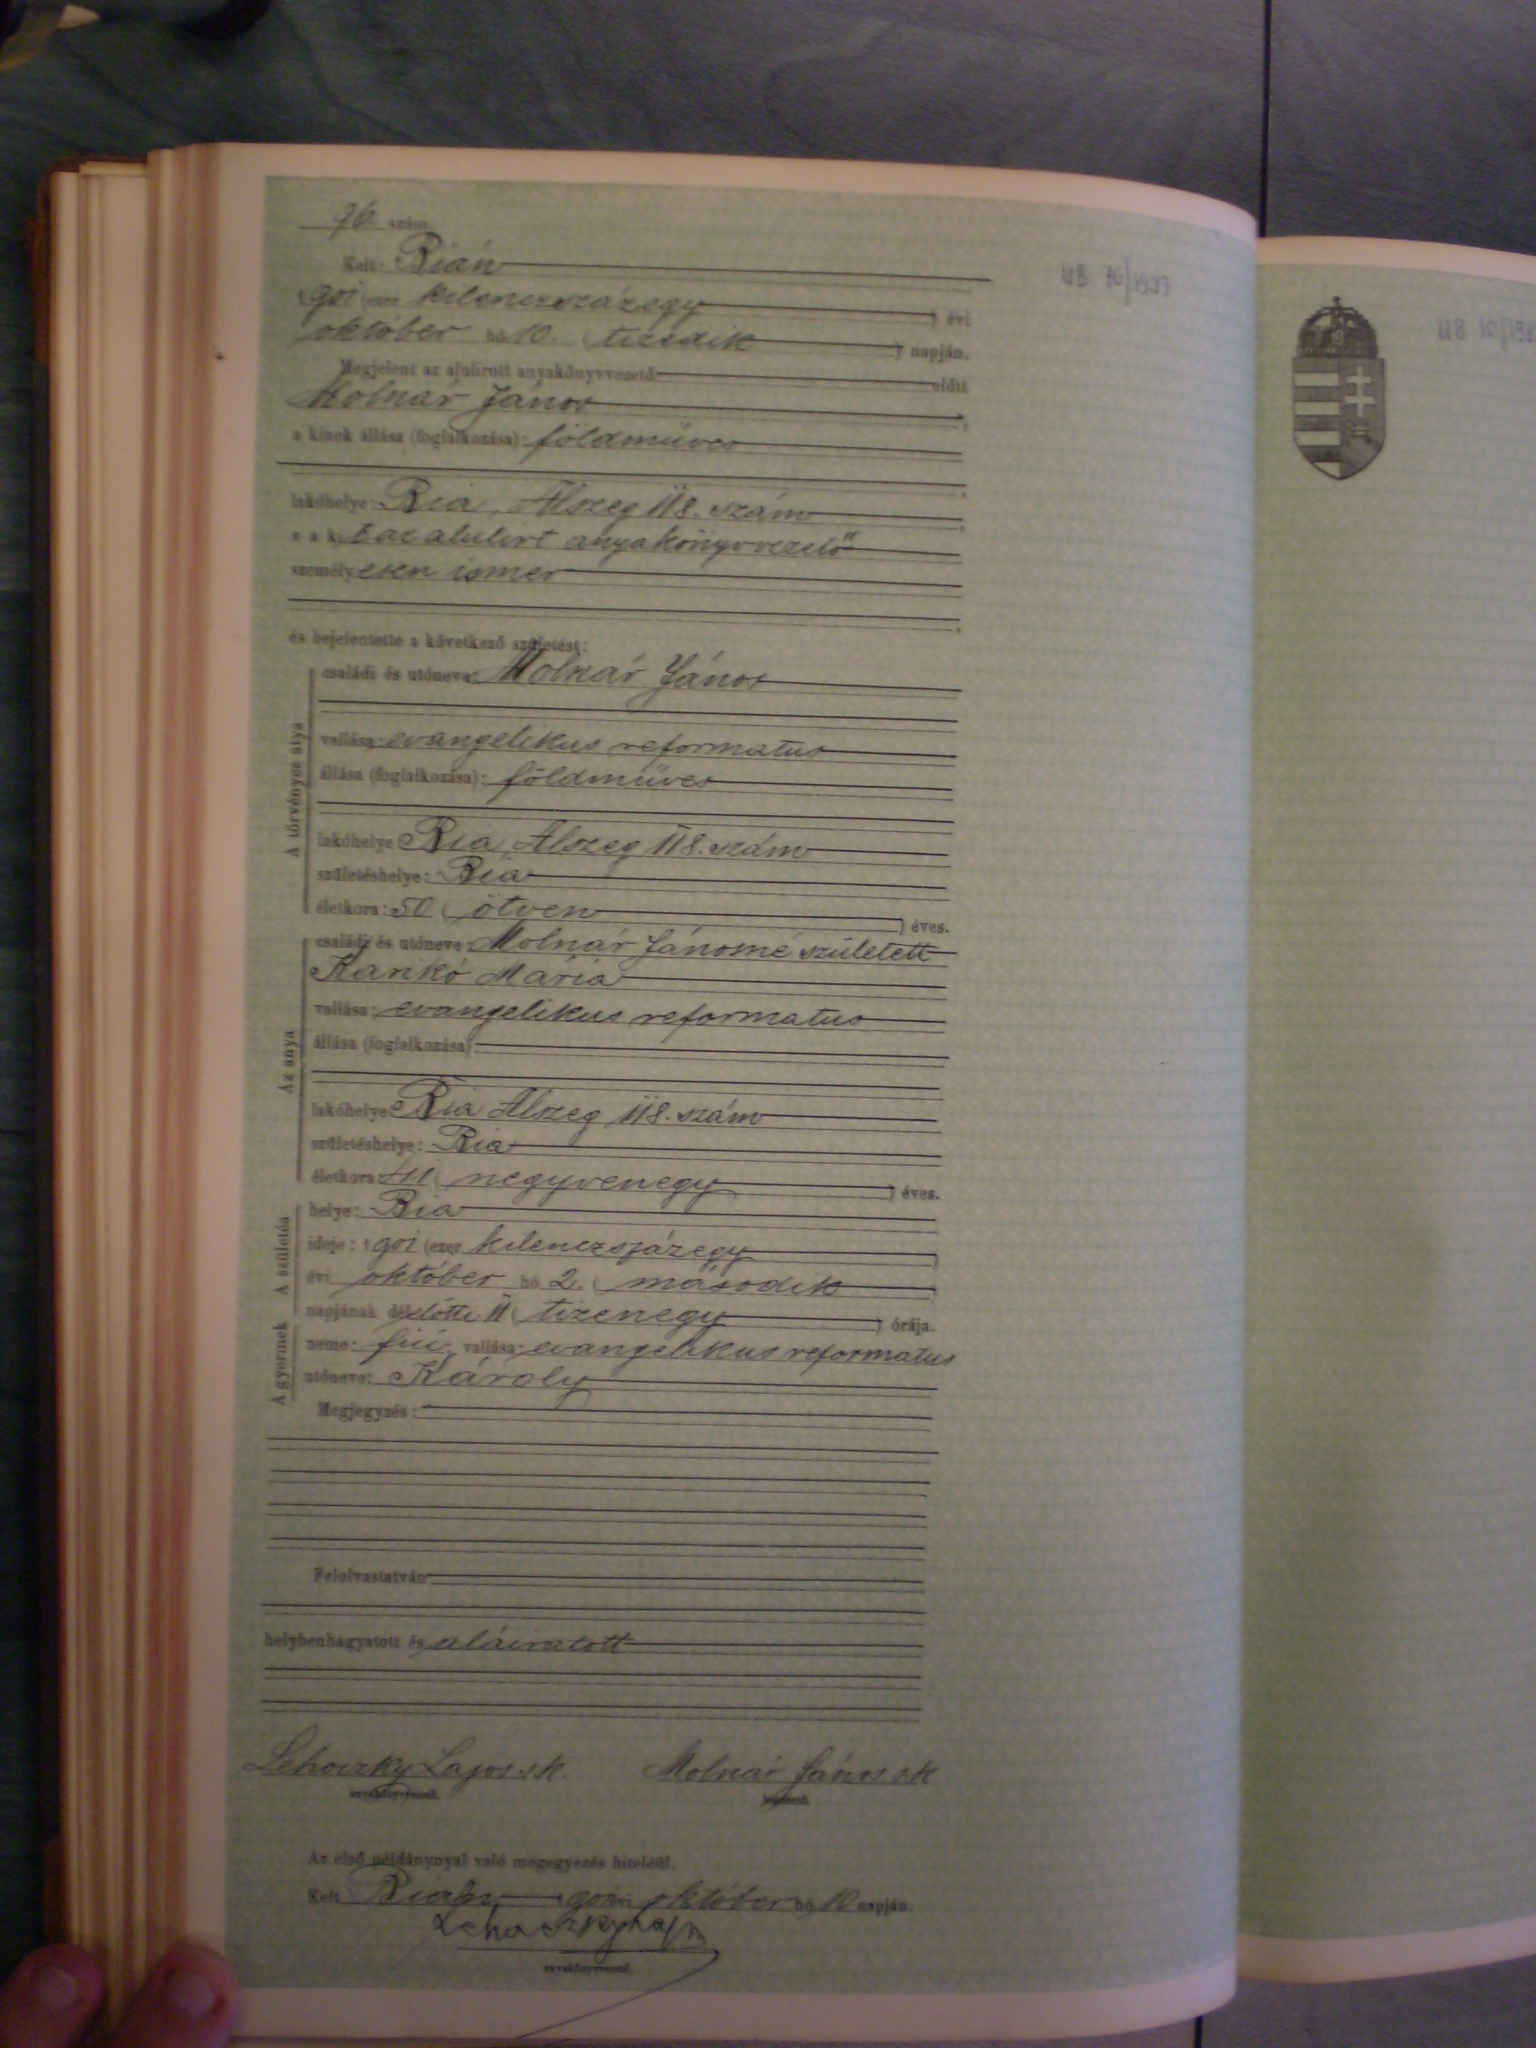 96. szám.
Kelt: Bián
1901 (ezer kilenczszázegy ) évi
október hó 10. ( tizedik ) napján.
Megjelent az alulirott anyakönyvvezető előtt
Molnár János ,
a kinek állása (foglalkozása): földműves
,
lakóhelye: Bia, Alszeg 118. szám ,
s a kit az alulirt anyakönyvvezető
személyesen ismer
,
és bejelentette a következő születést:
A törvényes atya
családi és utóneve: Molnár János
vallása: evangelikus reformatus
állása (foglalkozása): földműves
lakóhelye: Bia, Alszeg 118. szám
születéshelye: Bia
életkora: 50 ( ötven ) éves.
Az anya
családi és utóneve: Molnár Jánosné született
Karikó Mária
vallása: evangelikus reformatus
állása (foglalkozása):
lakóhelye: Bia Alszeg 118. szám
születéshelye: Bia
életkora: 41 ( negyvenegy ) éves.
A születés
helye: Bia
ideje: 1901 (ezer kilenczszázegy )
évi október hó 2. ( második )
napjának délelőtti 11 ( tizenegy ) órája.
A gyermek
neme: fiú; vallása: evangelikus reformatus
utóneve: Károly
Megjegyzés:
Felolvastatván
helybenhagyatott és aláiratott
Lehoczky Lajos sk. Molnár János sk
anyakönyvvezető. bejelentő.
Az első példánynyal való megegyezés hiteléül.
Kelt Bián 1901 évi október hó 10 napján.
Lehoczky Lajos
anyakönyvvezető.